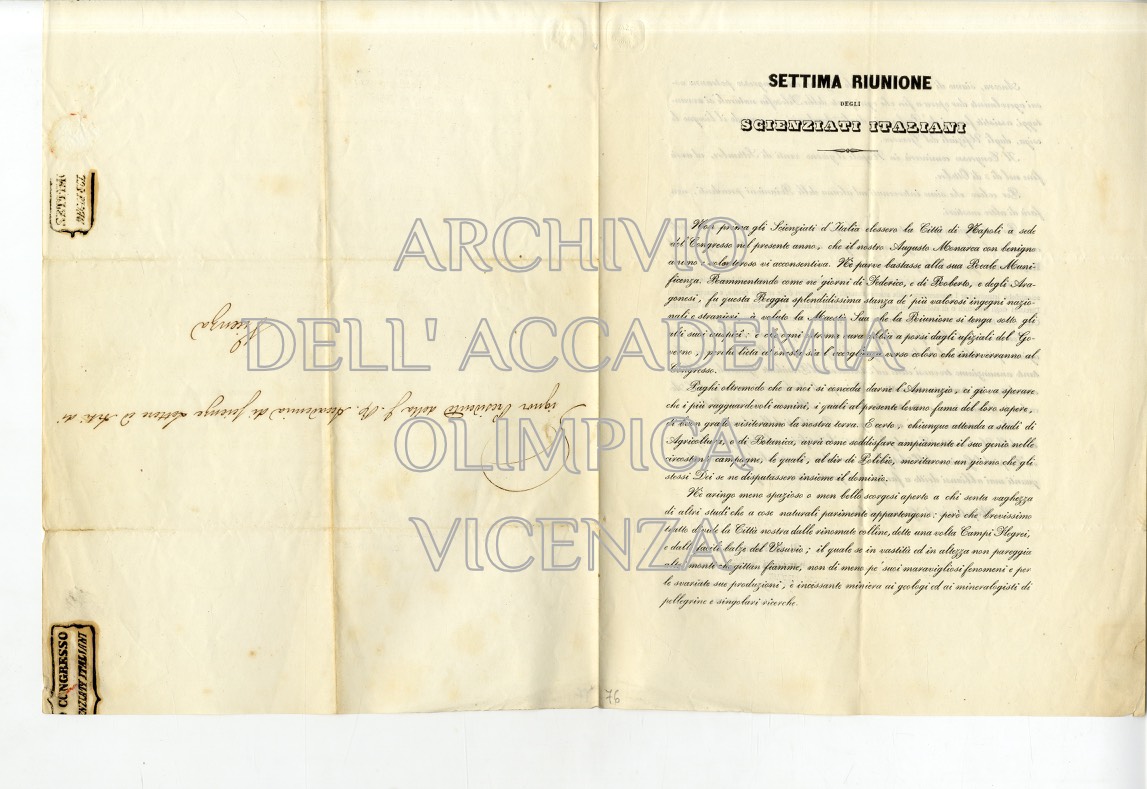 SETTIMO
CONGRESSO
SCIENZIATI ITALIANI
Signor Presidente della I. R. Accademia di Scienze Lettere ed Arti di
Vicenza
76
ARCHIVIO
DELL' ACCADEMIA
OLIMPICA
VICENZA
SETTIMA RIUNIONE
DEGLI
SCIENZIATI ITALIANI
Non prima gli Scienziati d'Italia elessero la Città di Napoli a sede
del Congresso nel presente anno, che il nostro Augusto Monarca con benigno
animo e volonteroso vi acconsentiva. Nè parve bastasse alla sua Reale Muni-
ficenza. Rammentando come ne' giorni di Federico, e di Roberto, e degli Ara-
gonesi, fu questa Reggia splendidissima stanza de' più valorosi ingegni nazio-
nali e stranieri, à voluto la Maestà Sua che la Riunione si tenga sotto gli
alti suoi auspicî: e che ogni estrema cura abbia a porsi dagli ufiziali del Go-
verno, perchè lieta ed onesta sia l'accoglienza verso coloro che interverranno al
Congresso.
Paghi oltremodo che a noi si conceda darne l'Annunzio, ci giova sperare
che i più ragguardevoli uomini, i quali al presente levano fama del loro sapere,
di buon grato visiteranno la nostra terra. E certo, chiunque attenda a studi di
Agricoltura, e di Botanica, avrà come soddisfare ampiamente il suo genio nelle
circostanti campagne, le quali, al dir di Polibio, meritarono un giorno che gli
stessi Dei se ne disputassero insieme il dominio.
Nè aringo meno spazioso o men bello scorgesi aperto a chi senta vaghezza
di altri studî che a cose naturali parimente appartengono: però che brevissimo
tratto divide la Città nostra dalle rinomate colline, dette una volta Campi Flegrei,
e dalle facili balze del Vesuvio; il quale se in vastità ed in altezza non pareggia
altri monti che gittan fiamme, non di meno pe' suoi maravigliosi fenomeni e per
le svariate sue produzioni, è incessante miniera ai geologi ed ai mineralogisti di
pellegrine e singolari ricerche.